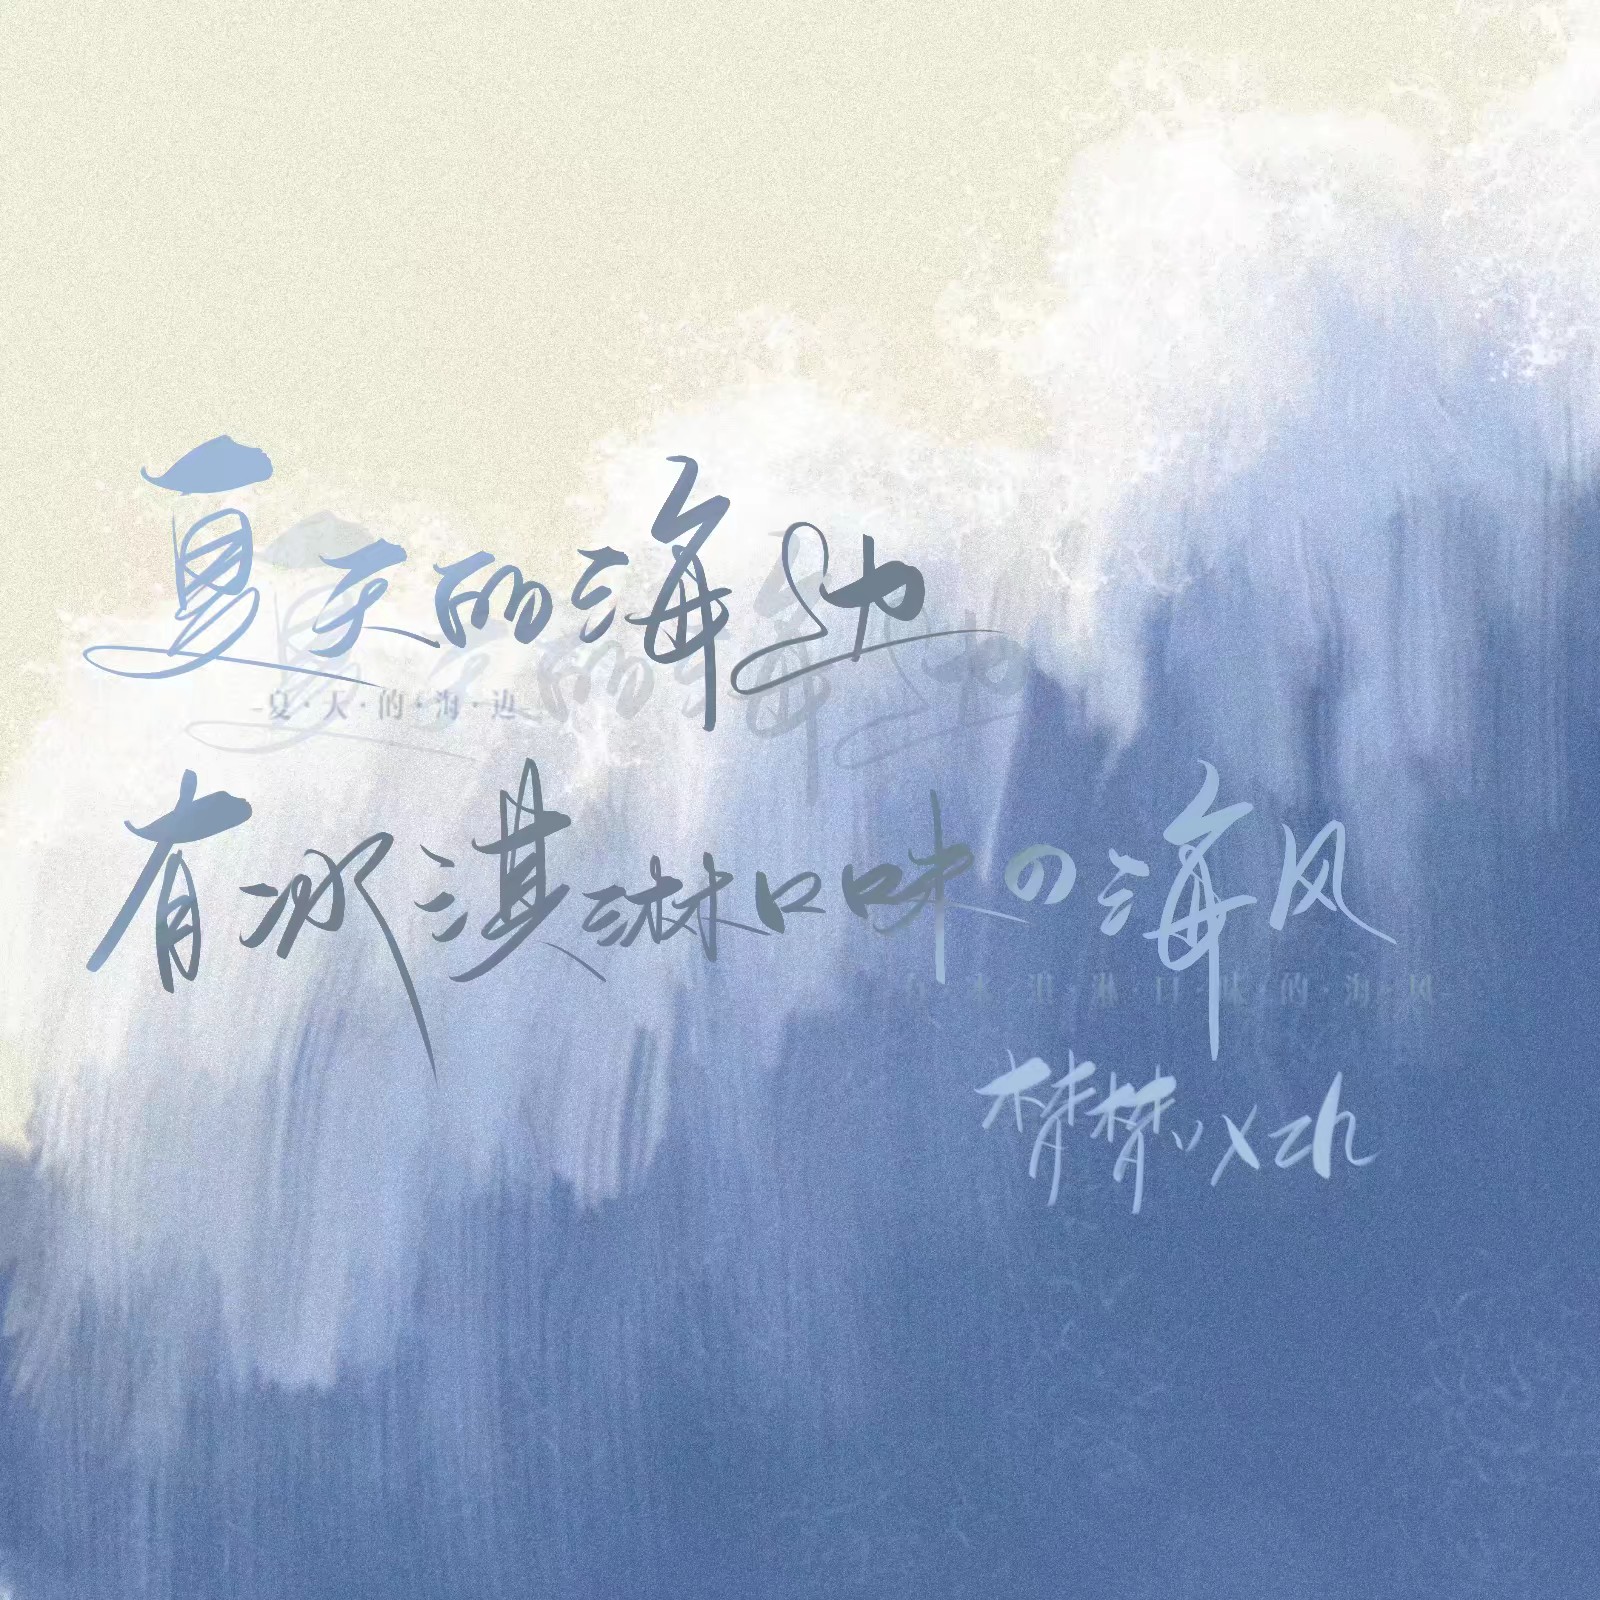 夏天的海边
-夏·天·的·海·边-
有冰淇淋口味の海风
有·冰·淇·淋·口·味·的·海·风-